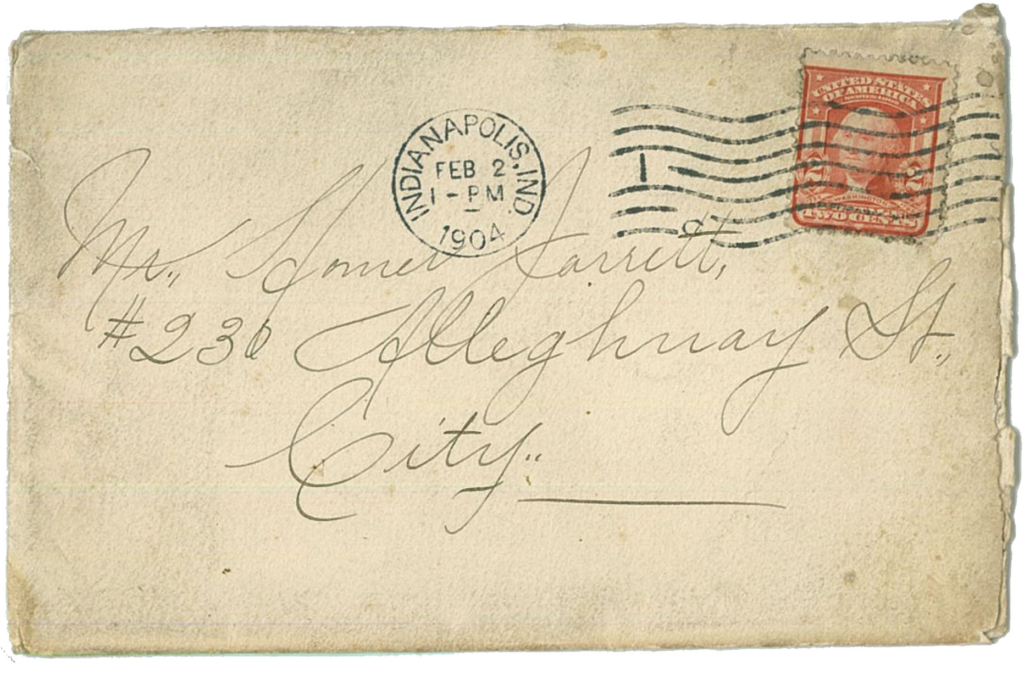 INDIANAPOLIS, IND.
FEB 2
1 - PM
1904
1
UNITED STATES
OF AMERICA
2 2
WASHINGTON
TWO CENTS
Mr., Homer Jarrett,
#230 Alleghnay St.,
City..